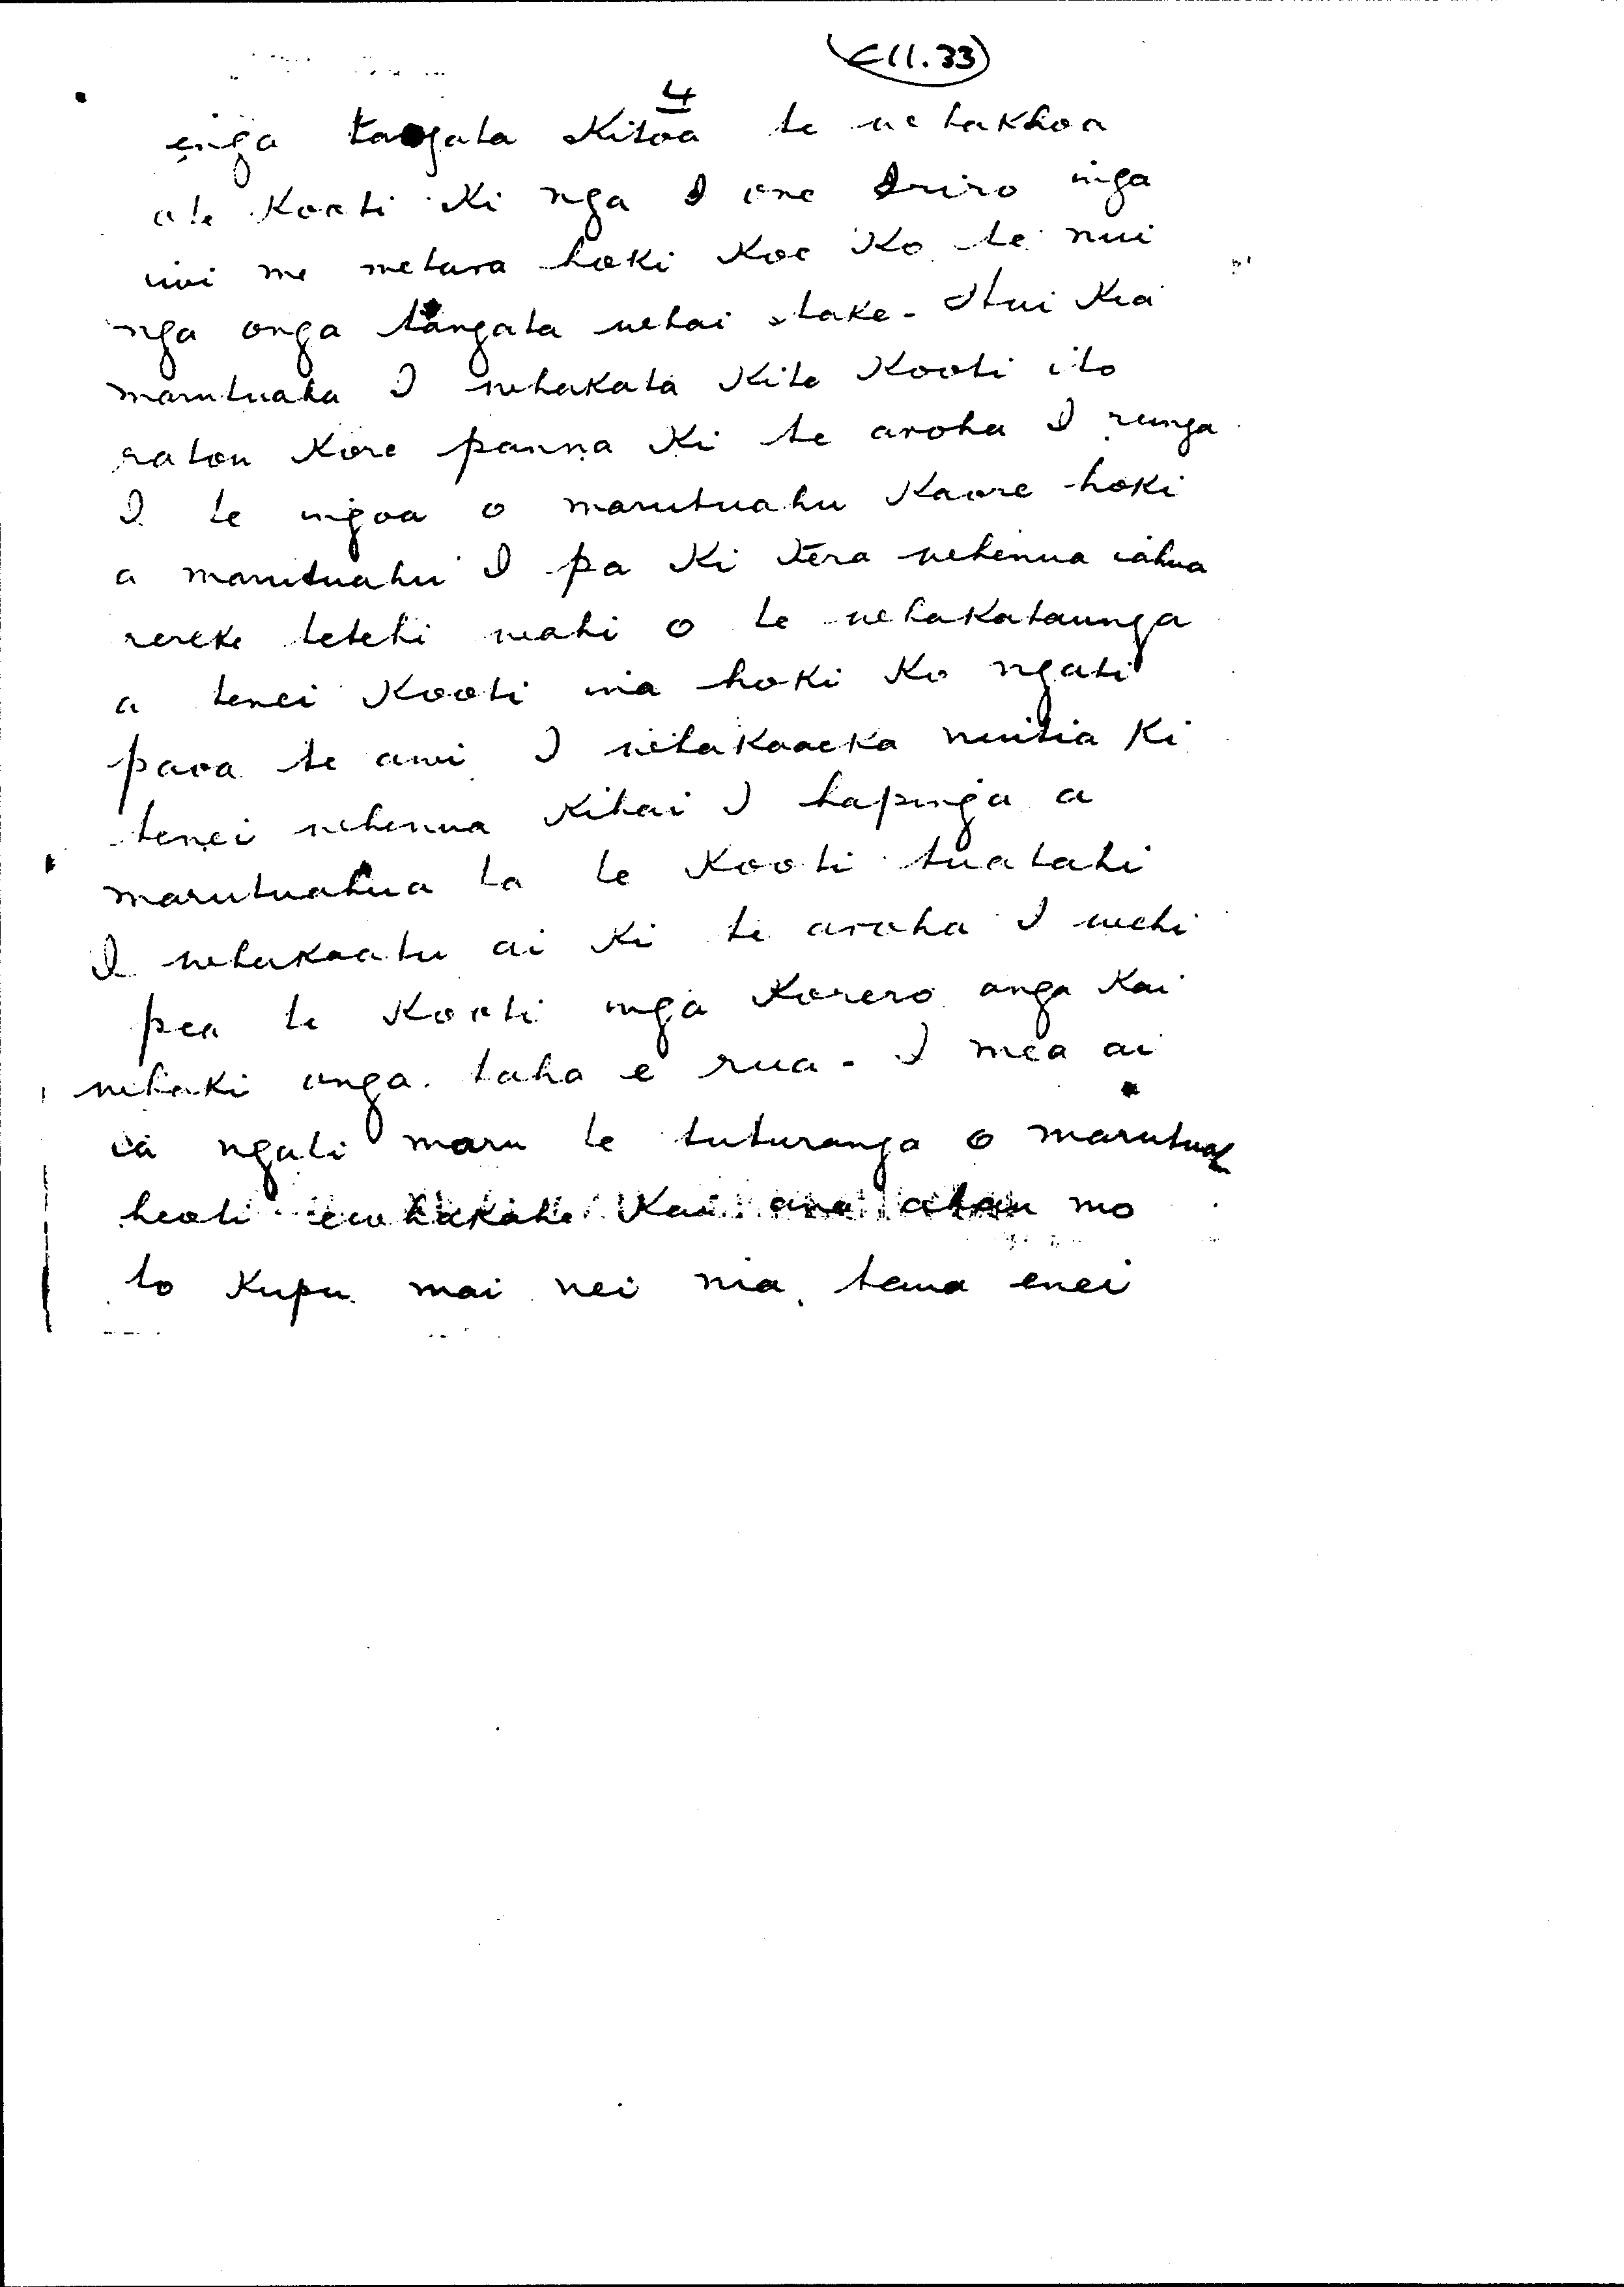 C11.33
4
einga tangata Kitoa te whakhoa
ate Kooti Ki nga I one I riro inga
iwi me metara hoki Koe Ko te nui
nga onga tangata whai take - Itui Kia
marutuaha I whakata Kite Kooti ito
ratou Kore panna Ki te aroha I runga
I te ingoa o marutuahu Kaore hoki
a marutuahu I pa Ki tera whenua iahua
rereke tetehi wahi o te whakataunga
a tenei Kooti ina hoki Ko ngati
paoa te awi I whakaaeka nuitia Ki
tenei whenua Kihai I hapinga a
marutuahua ta te Kooti tuatahi
I whakaatu ai Ki te aroha I wehi
pea te Kooti inga Korero anga Kai
whaki onga taha e rua - I mea ai
ia ngati maru te tuturanga o marutuah
heoti ewhakahe Kau ana ahau mo
to Kupu mai nei nia tena enei